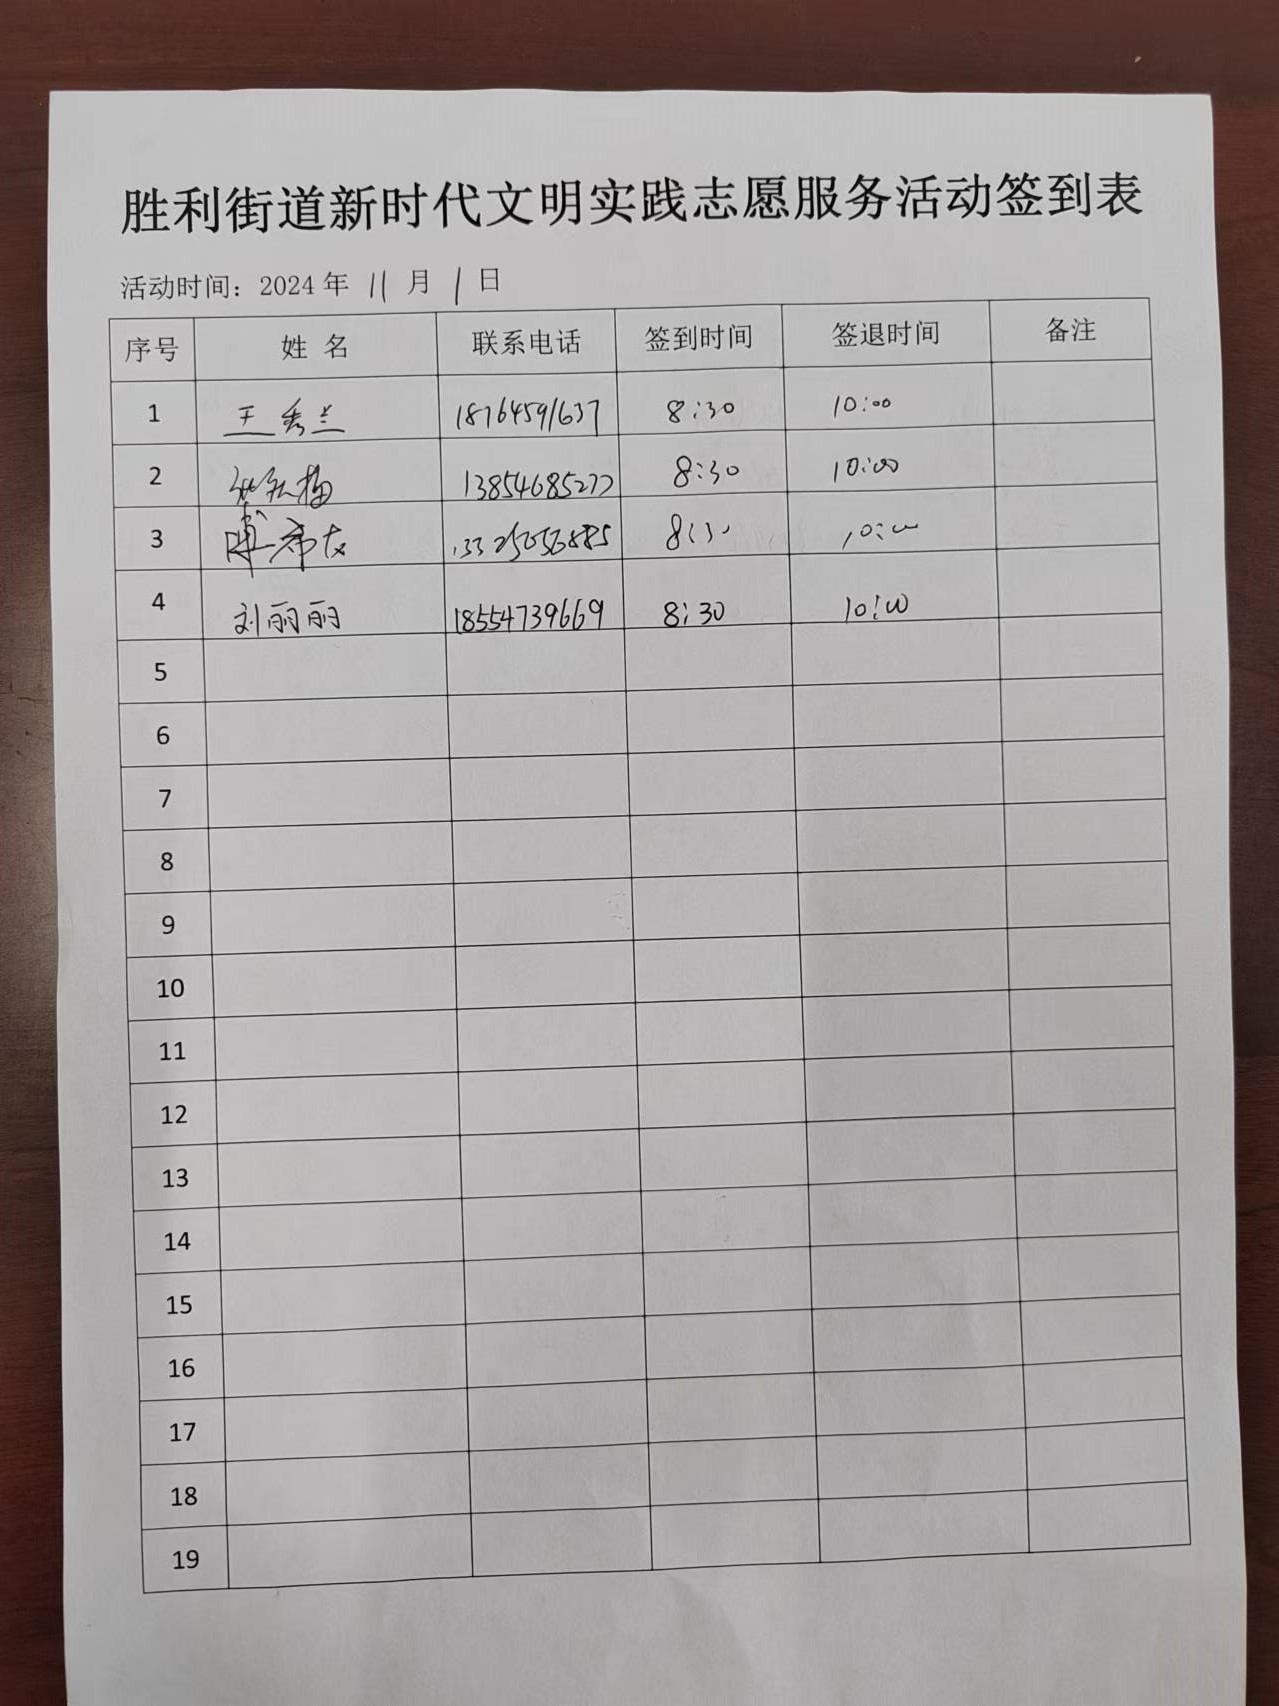 胜利街道新时代文明实践志愿服务活动签到表
活动时间：2024年 11 月 1 日
序号 姓 名 联系电话 签到时间 签退时间 备注
1 王秀兰 18764591637 8:30 10:00
2 13854685277 8:30 10:00
3 8:30 10:00
4 刘丽丽 18554739669 8:30 10:00
5
6
7
8
9
10
11
12
13
14
15
16
17
18
19